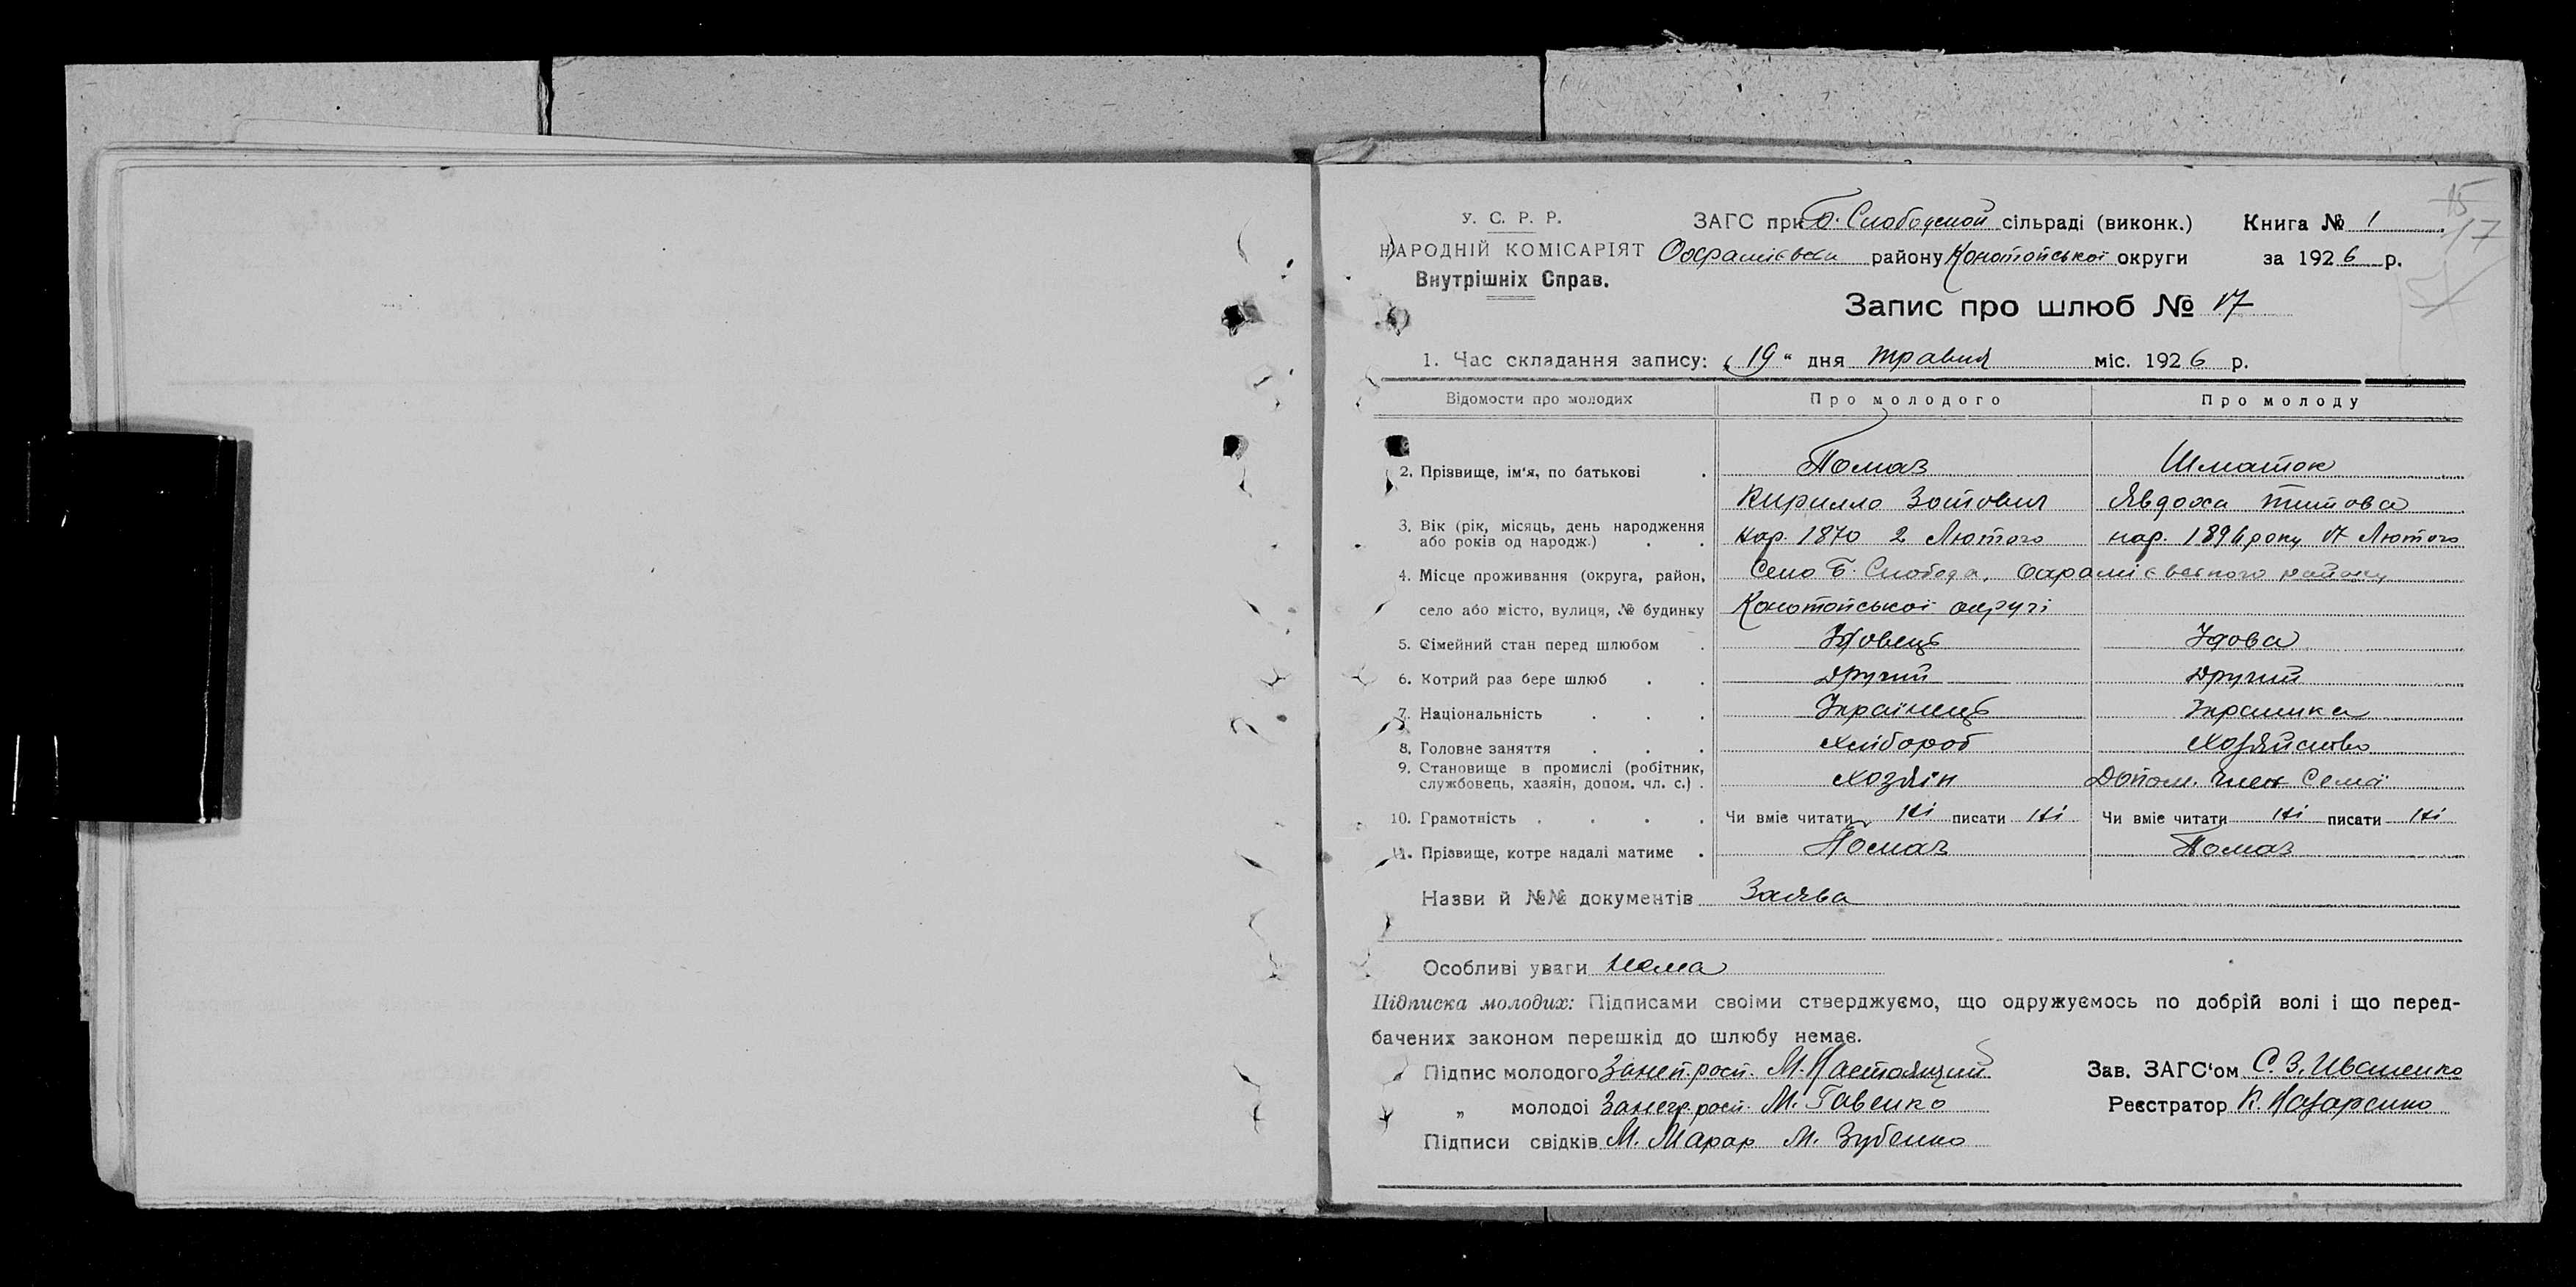 15
17
У. С. Р. Р.
НАРОДНІЙ КОМІСАРІЯТ
Внутрішніх Справ.
ЗАГС при Б. Слободской сільраді (виконк.)
району Конотопської округи
Книга № 1
за 1926 р.
Запис про шлюб № 17
1. Час складання запису: „19“ дня травня міс. 1926 р.
Відомости про молодих Про молодого Про молоду
2. Прізвище, ім'я, по батькові . Помаз Шматок
Кирилло Зотович Явдоха Титова
3. Вік (рік, місяць, день народження або років од народж.) . . нар. 1870 2 Лютого нар. року 17 Лютого
4. Місце проживання (округа, район, Село Б. Слобода, району
село або місто, вулиця, № будинку Конотопської округі
5. Сімейний стан перед шлюбом . Удовець Удова
6. Котрий раз бере шлюб . . Другий Другий
7. Національність . . . Українець Украинка
8. Головне заняття . . . Хлібороб Хозяйство
9. Становище в промислі (робітник, службовець, хазяін, допом. чл. с.) . Хозяін Допом. член Семї
10. Грамотність . . . . Чи вміє читати Ні писати Ні Чи вміє читати Ні писати Ні
11. Прізвище, котре надалі матиме . Помаз Помаз
Назви й №№ документів Заява
Особливі уваги Нема
Підписка молодих: Підписами своіми стверджуємо, що одружуємось по добрій волі і що перед-
бачених законом перешкід до шлюбу немає.
Підпис молодого М. Настоящий Зав. ЗАГС'ом С. З. Иваненко
„ молодоі М. Гавенко Реєстратор К. Назаренко
Підписи свідків М. Марар М. Зубенко